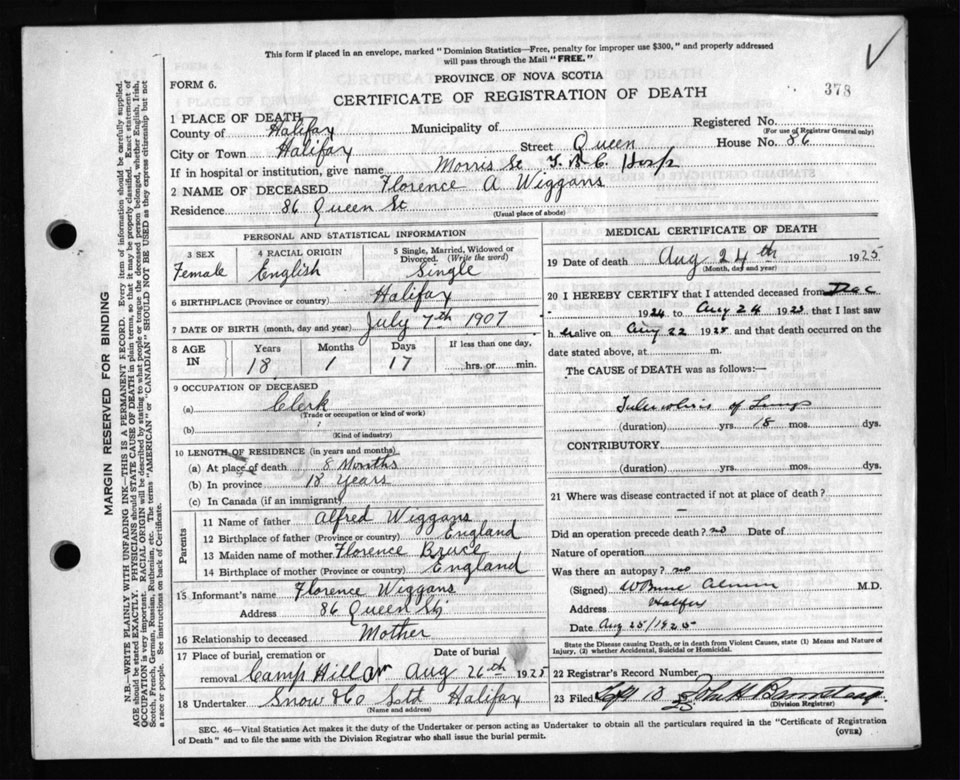 This form if placed in an envelope, marked "Dominion Statistics—Free, penalty for improper use $300," and properly addressed
will pass through the Mail "FREE."
PROVINCE OF NOVA SCOTIA
FORM 6.
CERTIFICATE OF REGISTRATION OF DEATH
378
1 PLACE OF DEATH
County of Halifax Municipality of Registered No.
(For use of Registrar General only)
City or Town Halifax Street Queen House No. 86
If in hospital or institution, give name Morris St
2 NAME OF DECEASED Florence A Wiggans
Residence 86 Queen St
(Usual place of abode)
PERSONAL AND STATISTICAL INFORMATION
3 SEX 4 RACIAL ORIGIN 5 Single, Married, Widowed or
Divorced. (Write the word)
Female English Single
6 BIRTHPLACE (Province or country) Halifax
7 DATE OF BIRTH (month, day and year) July 7th 1907
8 AGE IN Years Months Days If less than one day,
18 1 17 hrs. or min.
9 OCCUPATION OF DECEASED
(a) Clerk
(Trade or occupation or kind of work)
(b)
(Kind of industry)
10 LENGTH OF RESIDENCE (in years and months)
(a) At place of death 8 Months
(b) In province 18 Years
(c) In Canada (if an immigrant)
Parents
11 Name of father Alfred Wiggans
12 Birthplace of father (Province or country) England
13 Maiden name of mother Florence Bruce
14 Birthplace of mother (Province or country) England
15 Informant's name Florence Wiggans
Address 86 Queen St
16 Relationship to deceased Mother
17 Place of burial, cremation or Date of burial
removal Camp Hill Aug 26th 1925
18 Undertaker Snow & Co Ltd Halifax
(Name and address)
MEDICAL CERTIFICATE OF DEATH
19 Date of death Aug 24th 1925
(Month, day and year)
20 I HEREBY CERTIFY that I attended deceased from Dec
1924 to Aug 24 1925, that I last saw
h er alive on Aug 22 1925 and that death occurred on the
date stated above, at m.
The CAUSE of DEATH was as follows:—
Tuberculosis of Lungs
(duration) yrs. 18 mos. dys.
CONTRIBUTORY.
(duration) yrs. mos. dys.
21 Where was disease contracted if not at place of death?
—
Did an operation precede death? no Date of
Nature of operation
Was there an autopsy? no
(Signed) W Bruce Almon M.D.
Address Halifax
Date Aug 25/1925
State the Disease causing Death, or in death from Violent Causes, state (1) Means and Nature of
Injury, (2) whether Accidental, Suicidal or Homicidal.
22 Registrar's Record Number
23 Filed Sept 13
(Division Registrar)
SEC. 46—Vital Statistics Act makes it the duty of the Undertaker or person acting as Undertaker to obtain all the particulars required in the "Certificate of Registration
of Death" and to file the same with the Division Registrar who shall issue the burial permit.
(OVER)
MARGIN RESERVED FOR BINDING
N.B.—WRITE PLAINLY WITH UNFADING INK—THIS IS A PERMANENT RECORD. Every item of information should be carefully supplied.
AGE should be stated EXACTLY. PHYSICIANS should STATE CAUSE OF DEATH in plain terms, so that it may be properly classified. Exact statement of
OCCUPATION is very important. RACIAL ORIGIN will be described by stating to what people or tongue the deceased person belonged, whether English, Irish,
Scotch, French, German, Russian, Ruthenian, etc. The terms "AMERICAN" or "CANADIAN" SHOULD NOT BE USED as they express citizenship but not
a race or people. See instructions on back of Certificate.